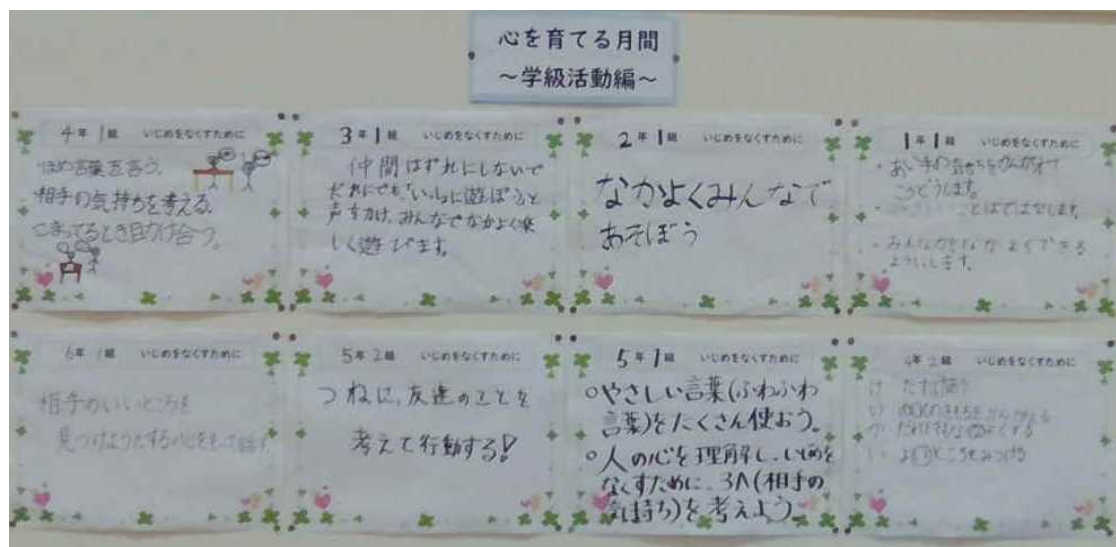 心を育てる月間
～学級活動編～
4年1組 いじめをなくすために
ほめ言葉を言う。
相手の気持ちを考える。
こまってるとき助け合う。
3年1組 いじめをなくすために
仲間はずれにしないで
だれにでも「いっしょに遊ぼう」と
声をかけ、みんなでなかよく楽
しく遊びます。
2年1組 いじめをなくすために
なかよくみんなで
あそぼう
1年1組 いじめをなくすために
・あい手の気もちをかんがえて
こうどうします。
ことばではなします。
・みんながなかよくできる
ようにします。
6年1組 いじめをなくすために
相手のいいところを
見つけようとする心をもって話す
5年2組 いじめをなくすために
つねに、友達のことを
考えて行動する!
5年1組 いじめをなくすために
○やさしい言葉(ふわふわ
言葉)をたくさん使おう。
○人の心を理解し、いじめを
なくすために、3人(相手の
気持ち)を考えよう。
4年2組 いじめをなくすために
け たすけ合う